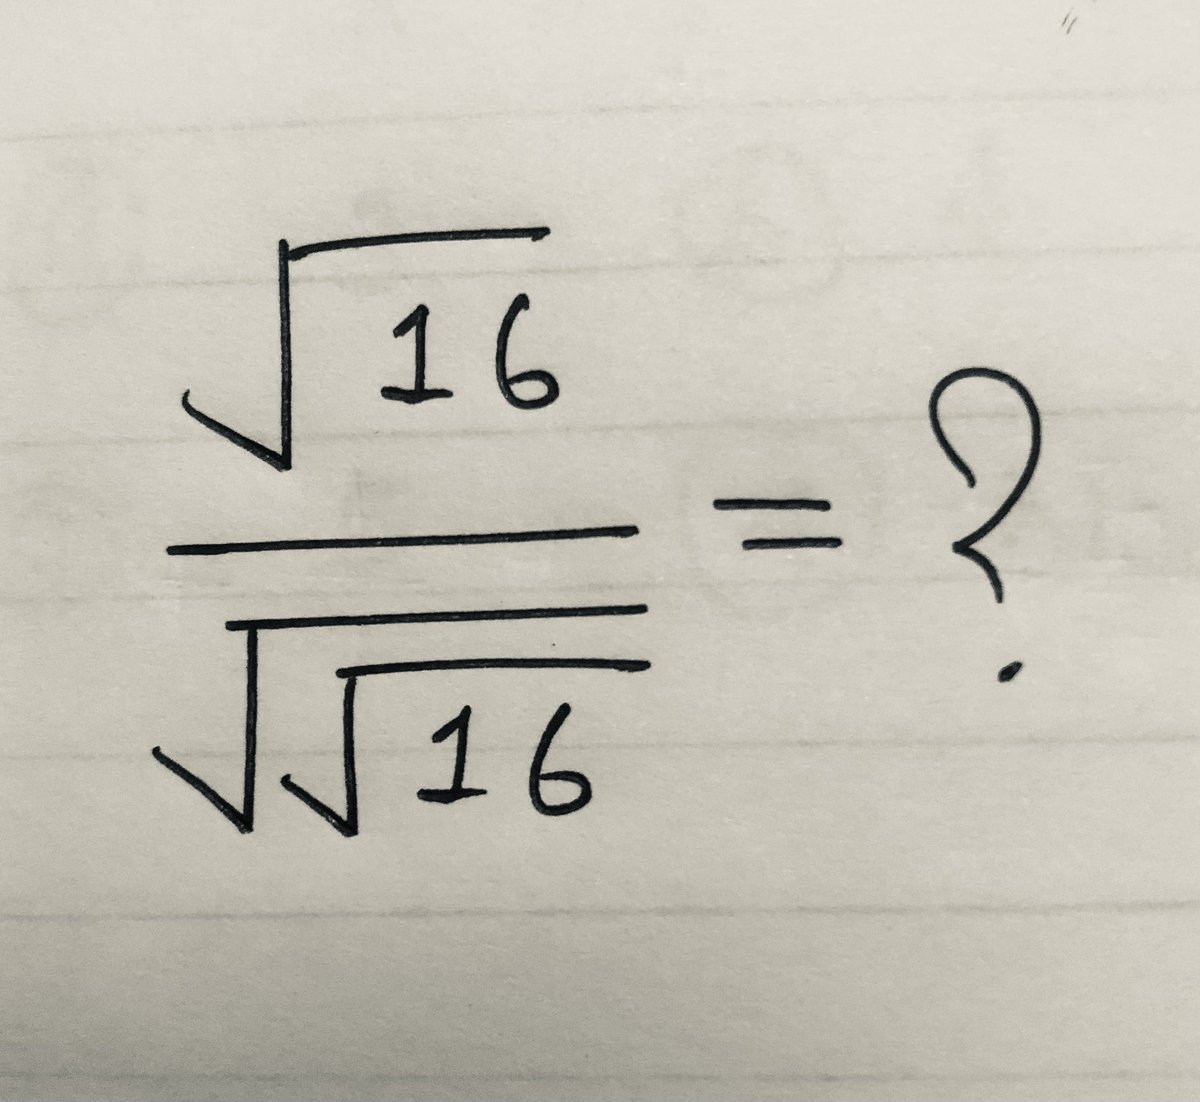 √16
√√16
= ?